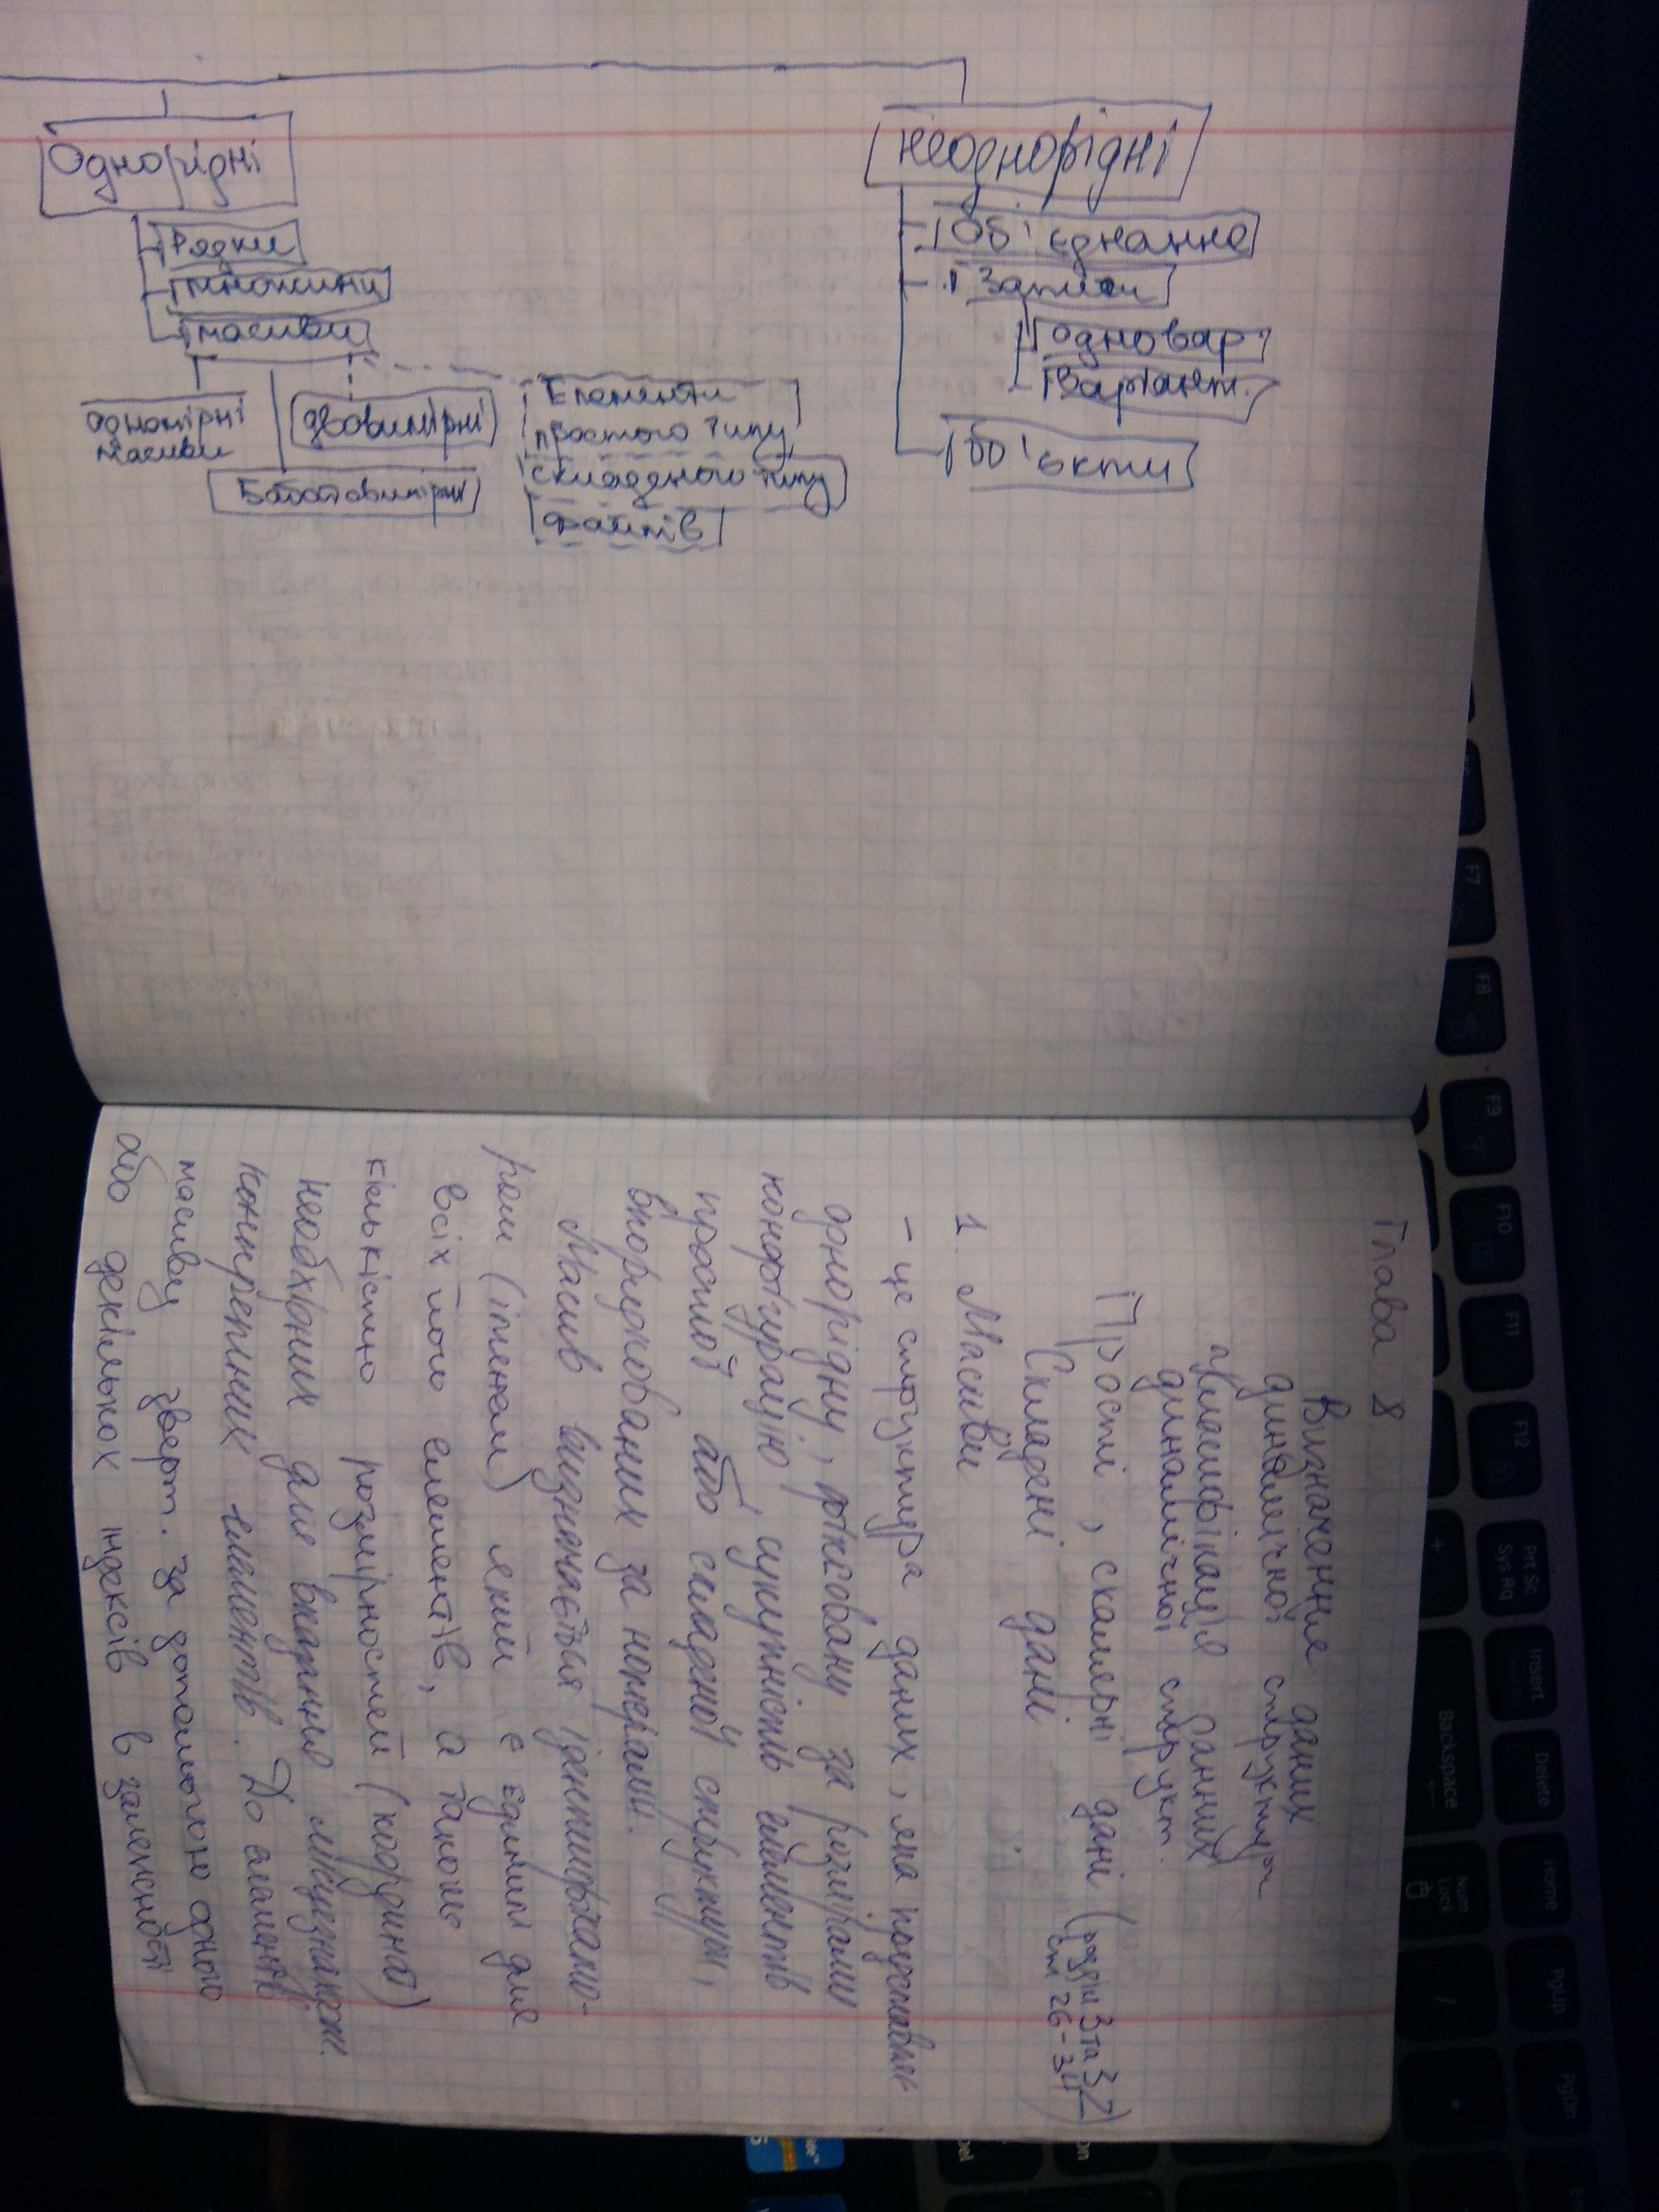 Однорідні
Рядки
множини
масиви
одномірні
масиви
двовимірні
Багатовимірні
Елементи
простого типу
складеного типу
файлів
неоднорідні
Об'єднання
Записи
одновар.
Варіант.
Об'єкти
Глава 8
Визначення даних
динамічної структури
Класифікація данних
динамічної структ.
Прості, скалярні дані (розділи 3 та 3/2
ст 26-34)
Складені дані
1. Масиви
- це структура данних, яка представляє
однорідну, фіксовану за розмірами
конфігурацію, сукупність елементів
простої або складної структури,
впорядкованих за номерами.
Масив визначається ідентифікато-
ром (іменем) який є єдиним для
всіх його елементів, а також
кількістю розмірностей (кординат)
необхідних для вказання місцезнаходж.
конкретних елементів. До елементів
масиву зверт. за допомогою одного
або декількох індексів в залежності
F7
F8
F9
F10
F11
F12
Prt Sc
Sys Rq
Insert
Delete
Home
PgUp
PgDn
Backspace
Num
Lock
+
/
*